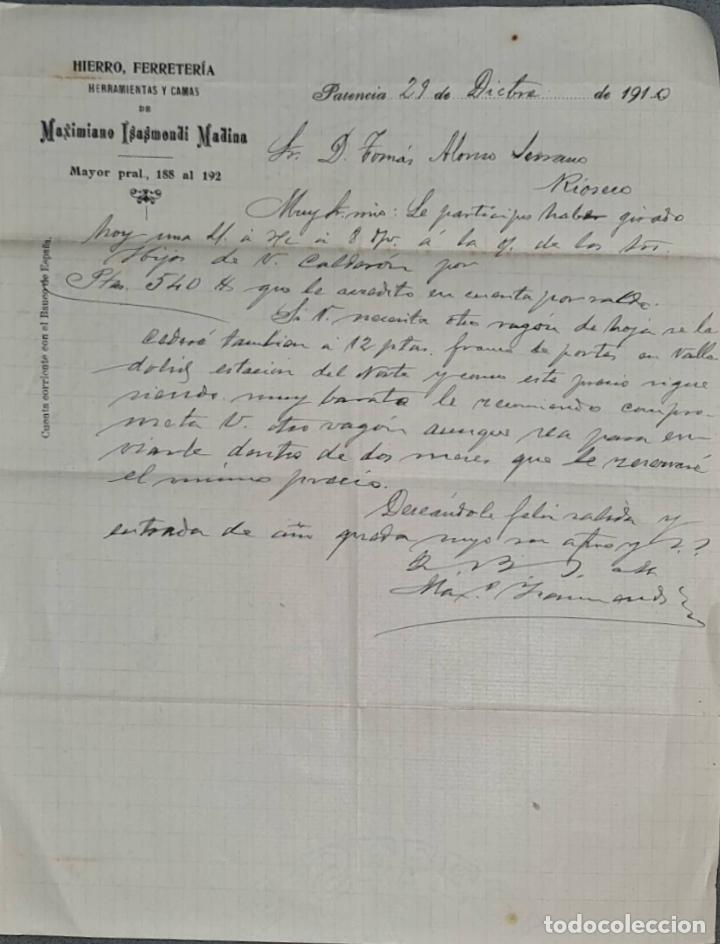 HIERRO, FERRETERÍA
HERRAMIENTAS Y CAMAS
DE
Maximiano Isasmendi Madina
Mayor pral., 188 al 192
Cuenta corriente con el Banco de España.
Palencia 29 de Dictre de 1910
Sr. D. Tomás Alonso Serrano
Rioseco
Muy Sr. mio: Le participo haber girado
hoy una L/ a m/c a 8 d/v. á la o/. de los Sres.
Hijos de V. Calderón por
Ptas. 540 que le acredito en cuenta por saldo.
Si V. necesita otro vagón de hoja se la
cederé tambien á 12 ptas. franco de portes en Valla
dolid estacion del Norte y como este precio sigue
siendo muy barato le recomiendo compro
meta V. otro vagon aunque sea para en
viarle dentro de dos meses que le reservaré
el mismo precio.
Deseándole feliz salida y
entrada de año queda suyo
Q B S M
Max.o Isasmendi
todocoleccion
todocoleccion.net